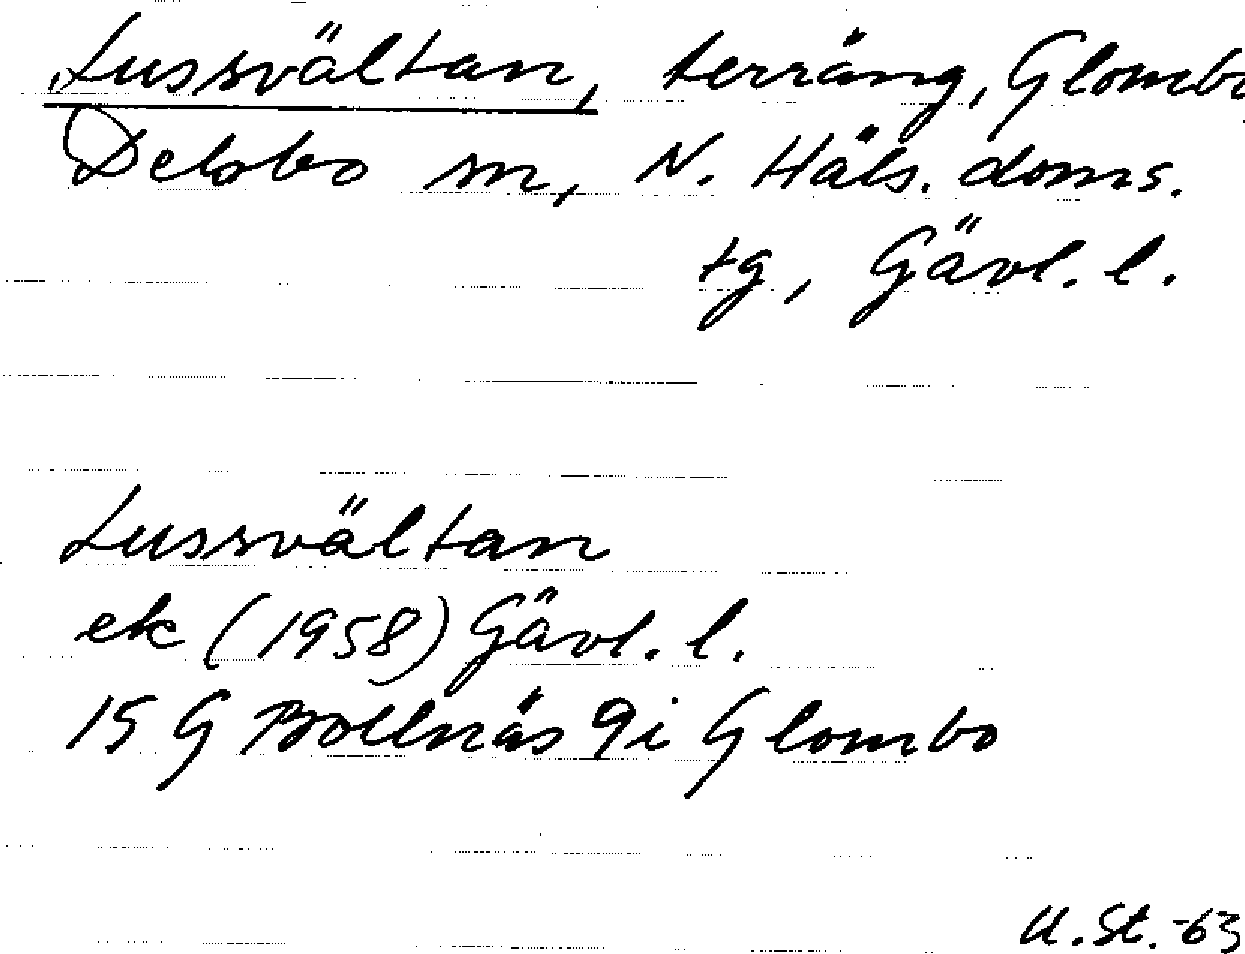 Lussvältan, terräng, Glombo
Delsbo sn, N. Häls. doms.
tg, Gävl. l.
Lussvältan
ek (1958) Gävl. l.
15 G Bollnäs 9i Glombo
U. St. -63